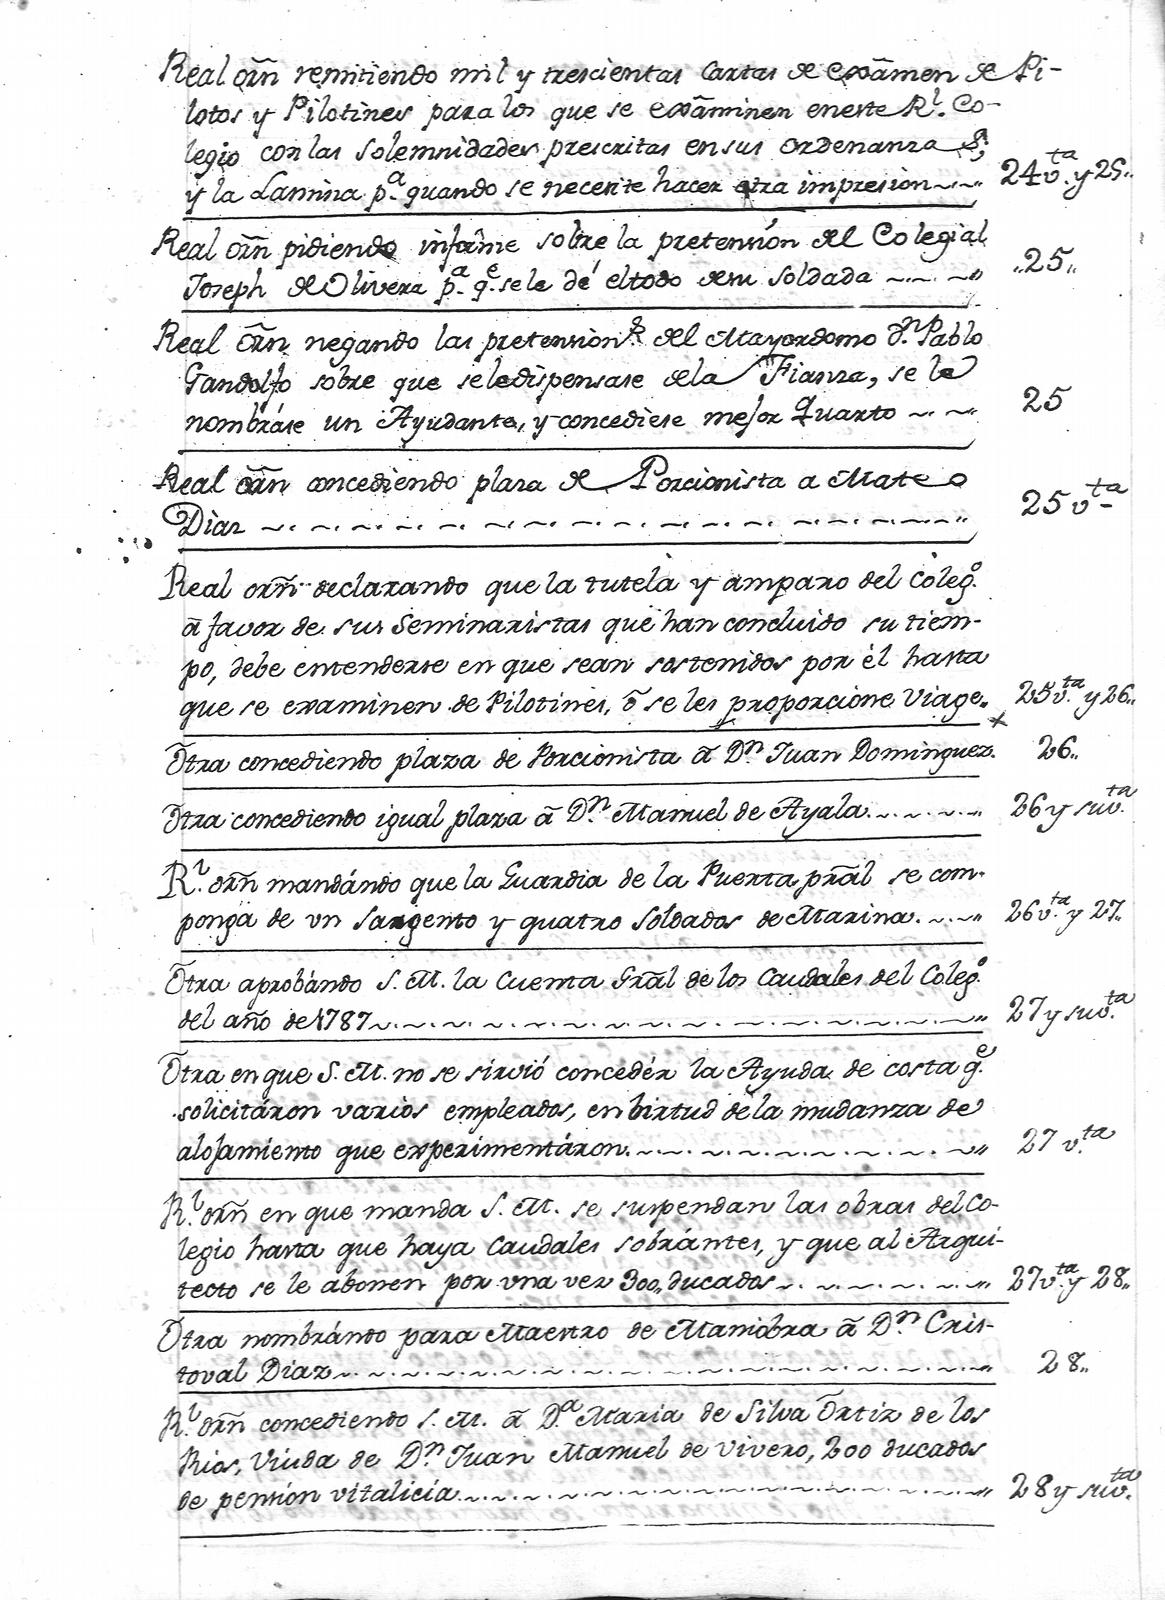 Real orñ remitiendo mil y trescientas Cartas de exâmen de Pi-
lotos y Pilotines para los que se exâminen en este Rl. Co-
legio con las solemnidades prescritas en sus ordenanzas;
y la Lamina pa. quando se necesite hacer otra impresion 24 vta. y 25..
Real orñ pidiendo informe sobre la pretensión del Colegial
Joseph de Olivera pa. qe. se le dé el todo de su soldada ..25..
Real orñ negando las pretensions. del Mayordomo Dn. Pablo
Gandolfo sobre que se le dispensase de la Fianza, se le
nombráse un Ayudante, y concediese mejor Quarto 25
Real orñ concediendo plaza de Porcionista a Mateo
Diaz 25 vta
Real orñ declarando que la tutela y amparo del Colego.
â favor de sus Seminaristas que han concluido su tiem-
po, debe entenderse en que sean sostenidos por él hasta
que se examinen de Pilotines, ô se les proporcione Viage. 25 vta. y 26..
Otra concediendo plaza de Porcionista â Dn. Juan Dominguez. 26..
Otra concediendo igual plaza â Dn. Manuel de Ayala. 26 y su vta.
Rl. orñ mandándo que la Guardia de la Puerta prâl se com-
ponga de vn Sargento y quatro Soldados de Marina. 26 vta. y 27..
Otra aprobándo S. M. la Cuenta Grâl de los Caudales del Colego.
del año de 1787 27 y su vta.
Otra en que S. M. no se sirvió concedér la Ayuda de costa qe.
solicitáron varios empleados, en birtud de la mudanza de
alojamiento que experimentáron. 27 vta.
Rl. orñ en que manda S. M. se suspendan las obras del Co-
legio hasta que haya Caudales sobrántes, y que al Arqui-
tecto se le abonen por vna vez 300,, ducados 27 vta. y 28..
Otra nombrándo para Maestro de Maniobra â Dn. Cris-
toval Diaz 28..
Rl. orñ concediendo S. M. â Da. Maria de Silva Ortiz de los
Rios, Viuda de Dn. Juan Manuel de Vivero, 200 ducados
de pensión vitalicia 28 y su vta.